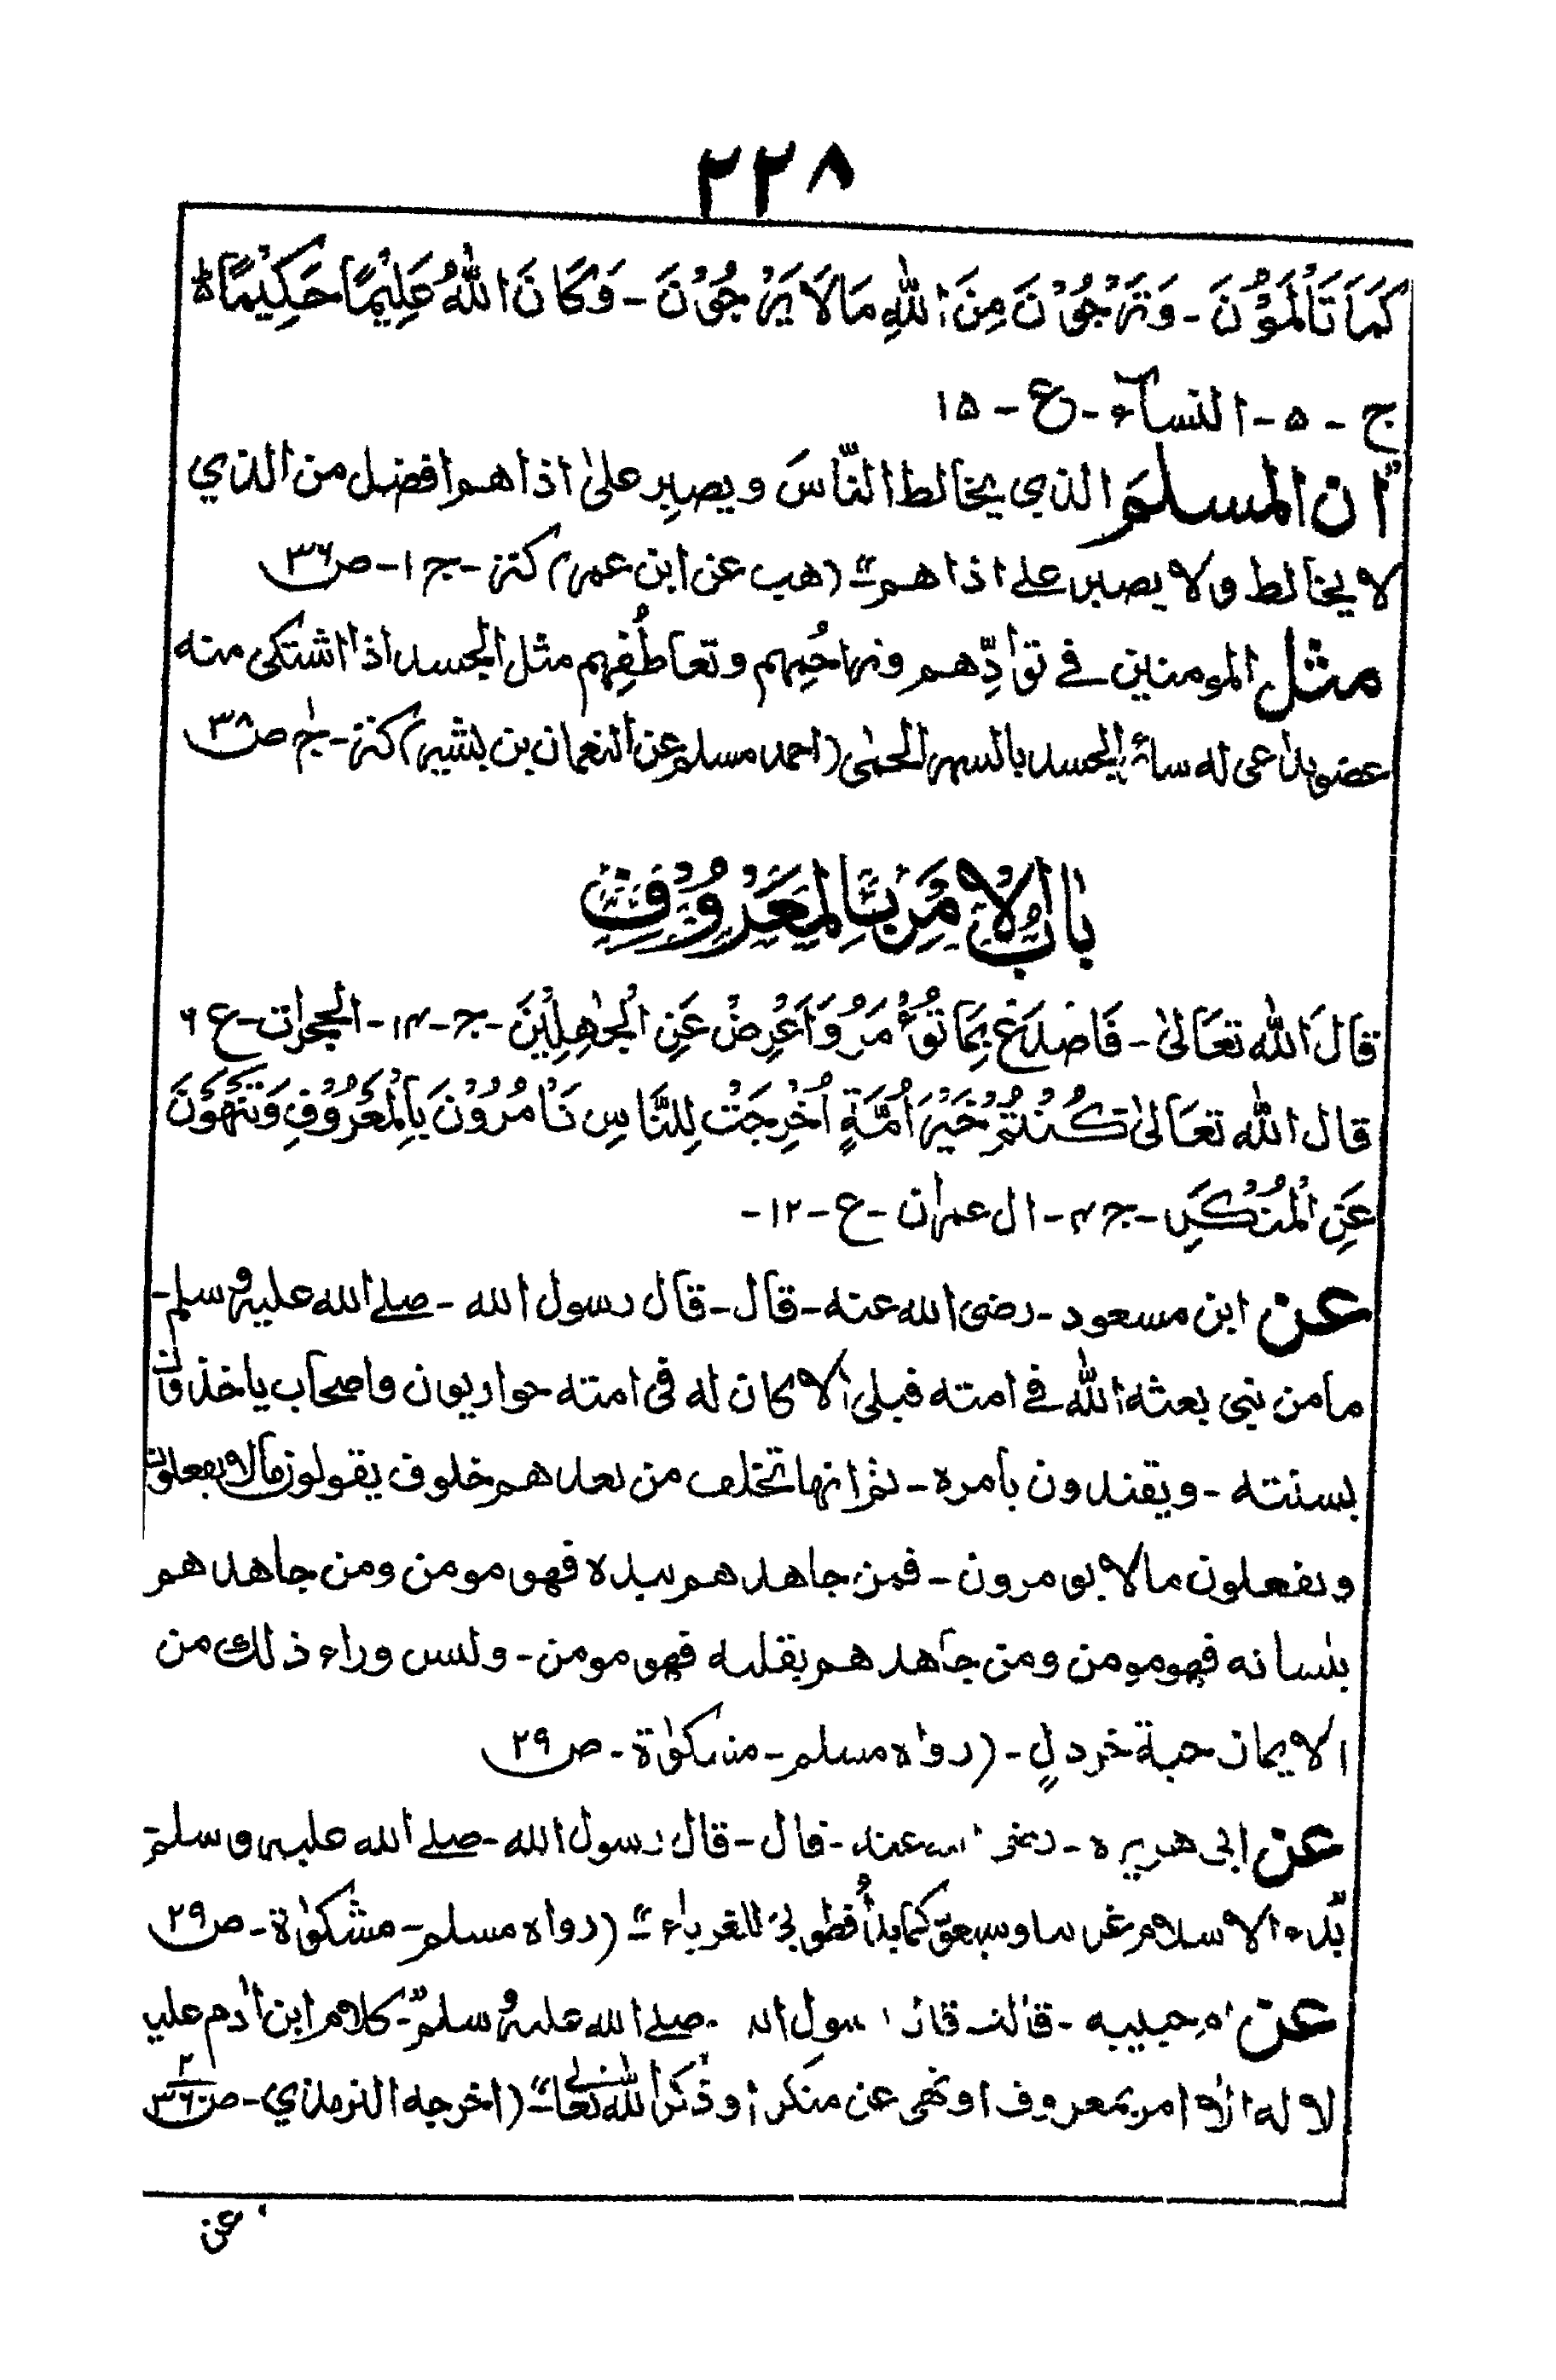 ٢٢٨
كَمَا تَأْلَمُوْنَ - وَتَرْجُوْنَ مِنَ اللّٰهِ مَا لَا يَرْجُوْنَ - وَكَانَ اللّٰهُ عَلِيْمًا حَكِيْمًا ط
ج - ٥ - النسآء - ع - ١٥
"ان المسلمَ الذي يخالط النّاسَ ويصبِر علىٰ اذاهم افضل من الذي
لا يخالط ولا يصبر علے اذاهم" (هب عن ابن عمر) كنز - ج ١ - ص ٣٦
مثل المومنين في توادِّهم وتراحُمِهم وتعاطُفِهم مثل الجسد اذا اشتكى منه
عضو تداعى له سائر الجسد بالسهر الحمٰى (احمد مسلم عن النعمان بن بشير) كنز - ج١ ص ٣٨
بابُ الْاَمْرِ بِالْمَعْرُوْفِ
قَالَ اللّٰه تَعَالىٰ - فَاصْدَعْ بِمَا تُؤْمَرُ وَاَعْرِضْ عَنِ الْجٰهِلِيْنَ - ج - ١٤ - الحجرات - ع ٦
قال اللّٰه تعَالىٰ كُنْتُمْ خَيْرَ اُمَّةٍ اُخْرِجَتْ لِلنَّاسِ تَامُرُوْنَ بِالْمَعْرُوْفِ وَتَنْهَوْنَ
عَنِ الْمُنْكَرِ - ج ٤ - ال عمران - ع - ١٢ -
عن ابن مسعود - رضى الله عنه - قال - قال رسول الله - صلے الله عليه وسلم -
ما من نبى بعثه اللّٰه في امته قبلى الا كان له فى امته حواريون واصحاب ياخذون
بسنته - ويقتدون بامره - ثم انها تخلف من بعدهم خلوف يقولون مالا يفعلون
ويفعلون مالا يومرون - فمن جاهدهم بيده فهو مومن ومن جاهدهم
بلسانه فهو مومن ومن جاهدهم بقلبه فهو مومن - وليس وراء ذلك من
الايمان حبة خردلٍ - (رواه مسلم - مشكوٰة - ص ٢٩
عن ابى هريره - رضى الله عنه - قال - قال رسول الله - صلے الله عليه وسلم
"بدء الاسلام غريبا وسيعود كما بدأ فطوبىٰ للغرباء" (رواه مسلم - مشكوٰة - ص ٢٩
عن ام حبيبه - قالت قال رسول الله - صلے الله عليه وسلم - "كلام ابن اٰدم عليه
لا له الا امر بمعروف او نهى عن منكر او ذكر اللّٰه تعالىٰ" (اخرجه الترمذي - ص ٢/٣٦٠
عن